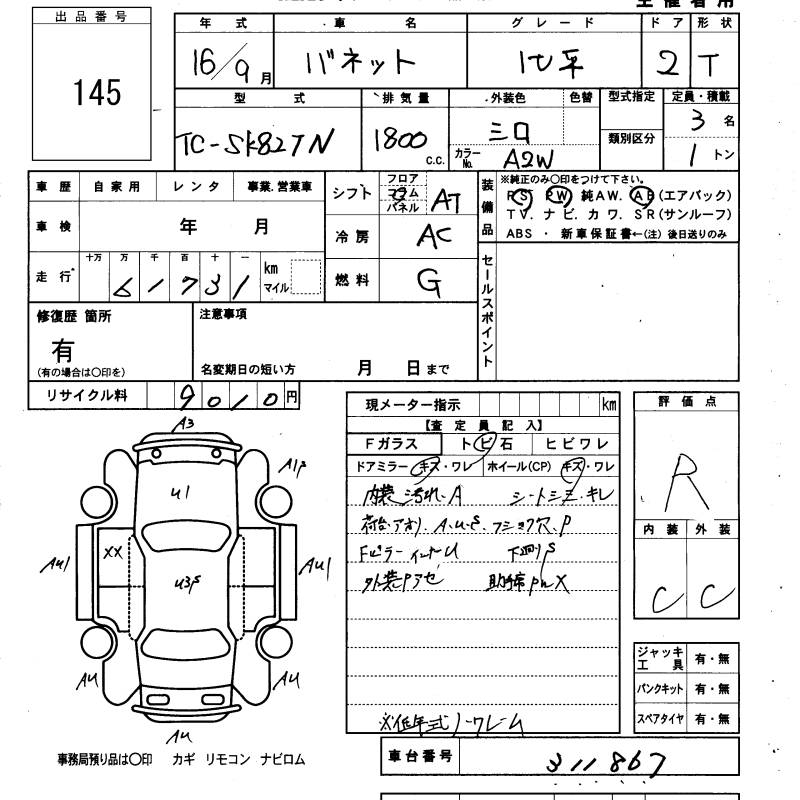 出品番号
145
年式 車名 グレード ドア 形状
16/9月 バネット 低平 2 T
型式 排気量 外装色 色替 型式指定 定員・積載
TC-SK82TN 1800 c.c. シロ 類別区分 3名
カラーNo. A2W 1トン
車歴 自家用 レンタ 事業.営業車
車検 年 月
走行 十万 万 千 百 十 一
61731 km マイル
シフト フロア コラム パネル AT
冷房 AC
燃料 G
装備品
※純正のみ○印をつけて下さい。
PS PW 純AW. AB(エアバック)
TV. ナビ. カワ. SR(サンルーフ)
ABS ・ 新車保証書←(注) 後日送りのみ
セールスポイント
修復歴 箇所
有
(有の場合は○印を)
注意事項
名変期日の短い方 月 日まで
リサイクル料 9010円
現メーター指示 km
【査定員記入】
Fガラス トビ石 ヒビワレ
ドアミラー(キズ・ワレ ホイール(CP) キズ・ワレ
内装汚れ.A シートシミ.キレ
荷台.アオリ.A.U.S. フショク穴.P
Fピラーインナーu 下回りS
外装Pアセ 助手席PWX
※低年式ノークレーム
評価点
R
内装 外装
C C
ジャッキ 工具 有・無
パンクキット 有・無
スペアタイヤ 有・無
A3
A1P
U1
XX
AU1
U3S
AU1
AU
AU
AU
事務局預り品は○印 カギ リモコン ナビロム
車台番号 311867